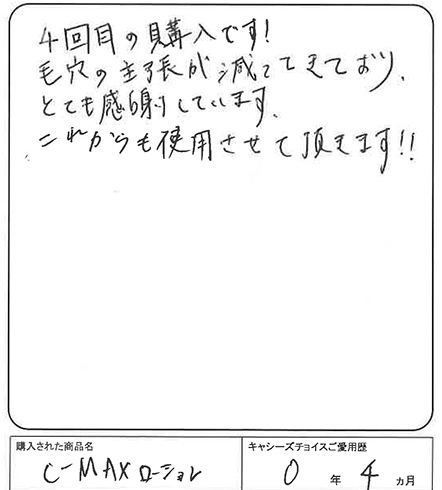 4回目の購入です!
毛穴の主張が減ってきており、
とても感謝しています。
これからも使用させて頂きます!!
購入された商品名
C-MAXローション
キャシーズチョイスご愛用歴
0年4ヵ月